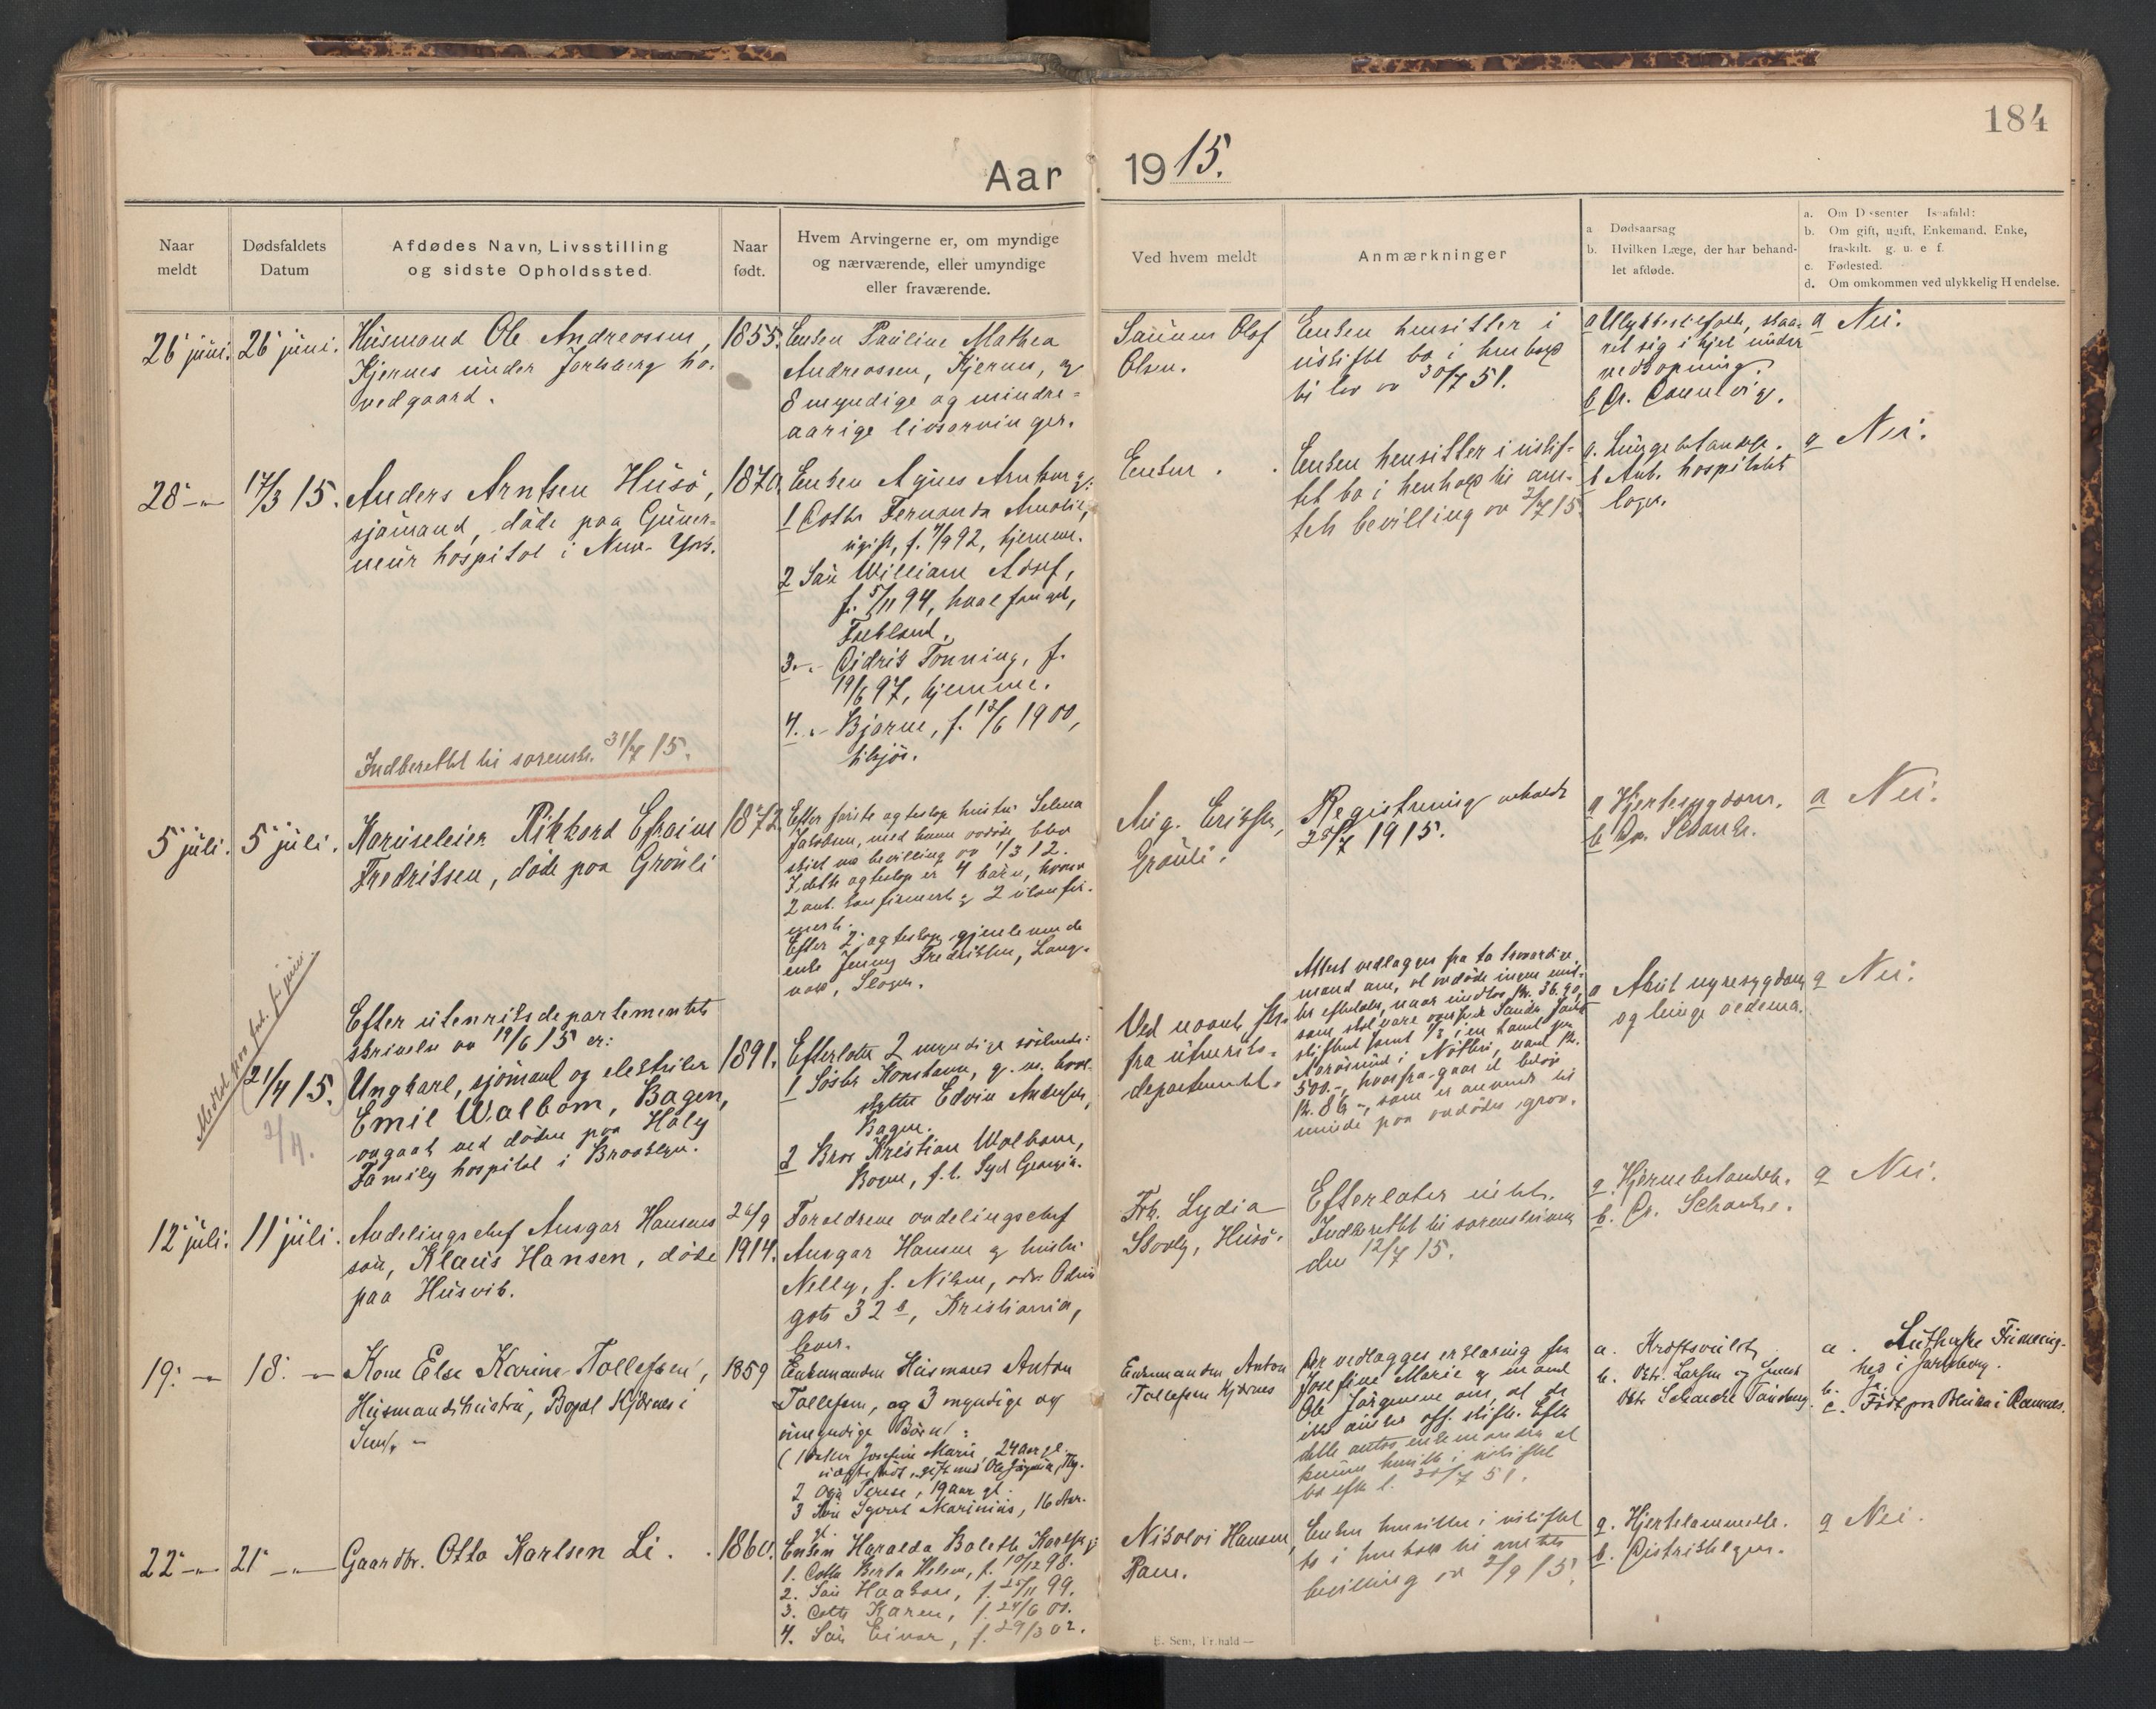 184
Aar 1915.
Naar meldt
Dødsfaldets Datum
Afdødes Navn, Livsstilling og sidste Opholdssted.
Naar født.
Hvem Arvingerne er, om myndige og nærværende, eller umyndige eller fraværende.
Ved hvem meldt
Anmærkninger
a Dødsaarsag
b. Hvilken Læge, der har behandlet afdøde.
a. Om Dissenter I saafald:
b. Om gift, ugift, Enkemand, Enke, fraskilt. g. u. e f.
c. Fødested.
d. Om omkommen ved ulykkelig Hendelse.
26 juni. 26 juni.
Husmand Ole Andreassen,
Kjernes under Jarlsberg ho-
vedgaard.
1855.
Enken Pauline Mathea
Andreassen, Kjernes, og
8 myndige og mindre-
aarige livsarvinger.
Sønnen Olaf
Olsen.
Enken hensitter i
uskiftet bo i henhold
til lov av 30/7 51.
a Ulykkestilfælde, skaa-
ret sig i hjel under
b Dr.
a Nei.
28 -"- 17/3 15.
Anders Arntsen Husø,
sjømand, døde paa Guver-
neur hospital i New-York.
1870.
Enken Agnes Arntsen og:
1 Datter Fernanda Amalie,
ugift, f. 7/9 92, hjemme.
2 Søn William Adolf,
f. 5/11 94, hvalfanger,
Falkland.
3. -"- Didrik Tønning, f.
19/6 97, hjemme.
4. -"- Bjarne, f. 13/6 1900,
tilsjøs.
Enken.
Enken hensitter i uskif-
tet bo i henhold til amt-
tets bevilling av 2/7 15.
a. Lungebetændelse.
b Amk. hospitalets
læge.
a Nei.
Indberettet til sorenskr. 31/7 15.
5 juli. 5 juli.
Karuseleier Rikhard Efraim
Fredriksen, døde paa Grøuli
1872.
Efter første ægteskap hustru Selma
Jakobsen, med hvem avdøde blev
skilt ved bevilling av 1/3 12.
I dette ægteskap er 4 børn, hvorav
2 ant. konfirmert og 2 ukonfir-
mert.
Efter 2. ægteskap gjenlevende
enke Jenny Fredriksen, Lang-
vold, Slagen.
Aug. Eriksen,
Grøuli.
Registrering avholdt
28/7 1915.
a Hjertesygdom.
b Dr. Schanke.
a Nei.
2/4.
21/4 15.
Efter utenriksdepartementets
skrivelse av 19/6 15 er:
Ungkarl, sjømand og elektriker
Emil Walbom, Bagen,
avgaat ved døden paa Holy
Family hospital i Brooklyn.
1891.
Efterlater 2 myndige søskende:
1 Søster Konstanse, g. m. hval-
skytter Edvin Andersen,
Bagen.
2 Bror Kristian Walbom,
Bagen, f. t. Syd Georgia.
Ved nævnte skr.
fra utenriks-
departementet.
Attest vedlægges fra to troværdige
mænd om, at avdøde ingen mid-
ler efterlater, naar undtas kr. 36.90,
500.-, hvorfra gaar et beløp
kr. 86.-, som er anvendt til
minde paa avdødes grav.
a Akut nyresygdom
og lunge oedema.
a Nei.
12 juli. 11 juli.
Avdelingschef Ansgar Hansens
søn, Klaus Hansen, døde
paa Husvik.
26/9 1914.
Forældrene avdelingschef
Ansgar Hansen og hustru
Nelly, f. Nilsen, adr. Odins
gate 32 b, Kristiania,
lever.
Frk. Lydia
Skovly, Husø.
Efterlater intet.
Indberettet til sorenskriveren
den 12/7 15.
a. Hjernebetændelse.
b. Dr. Schanke.
a Nei.
19. -"- 18. -"-
Kone Else Karine Tollefsen,
Husmandshustru, Bopæl Kjærnes i
Sem. -
1859
Enkemanden Husmand Anton
Tollefsen, og 3 myndige og
umyndige Børn:
(1 Datter Josefine Marie, 24 aar gl.
uægte født, gift med Ole Jørgensen, Tbg.
2 Olga Terese, 19 aar gl.
3 Søn Sigurd Marinius, 16 Aar.
Enkemanden, Anton
Tollefsen Kjærnes
Der vedlægges erklæring fra
Josefine Marie og mand
Ole Jørgensen om, at de
ikke ønsker off. skifte. Efter
dette antas enkemanden at
kunne hensitte i uskiftet
bo efter l. 30/7 51.
a. Kræftsvulst,
b. Dktr. Larsen og
Dktr Schanche Tønsberg.
a. Lutherske Frimenig-
hed i Jarlsberg.
b. g.
c. Født paa i Ramnes.
22 -"- 21 -"-
Gaardbr. Otto Karlsen Li.
1860.
Enken Haralda Bolette Karlsen og
1. Datter Berta Helene, f. 10/12 98.
2. Søn Haakon, f. 25/11 99.
3. Datter Karen, f. 24/6 00.
4. Søn Einar, f. 29/3 02.
Nikolai Hansen,
Ram.
Enken hensitter i uskiftet
bo i henhold til amtets
bevilling av 2/9 15.
a. Hjertelammelse.
b. Distriktslægen.
a Nei.
E. Sem, Fr.hald —